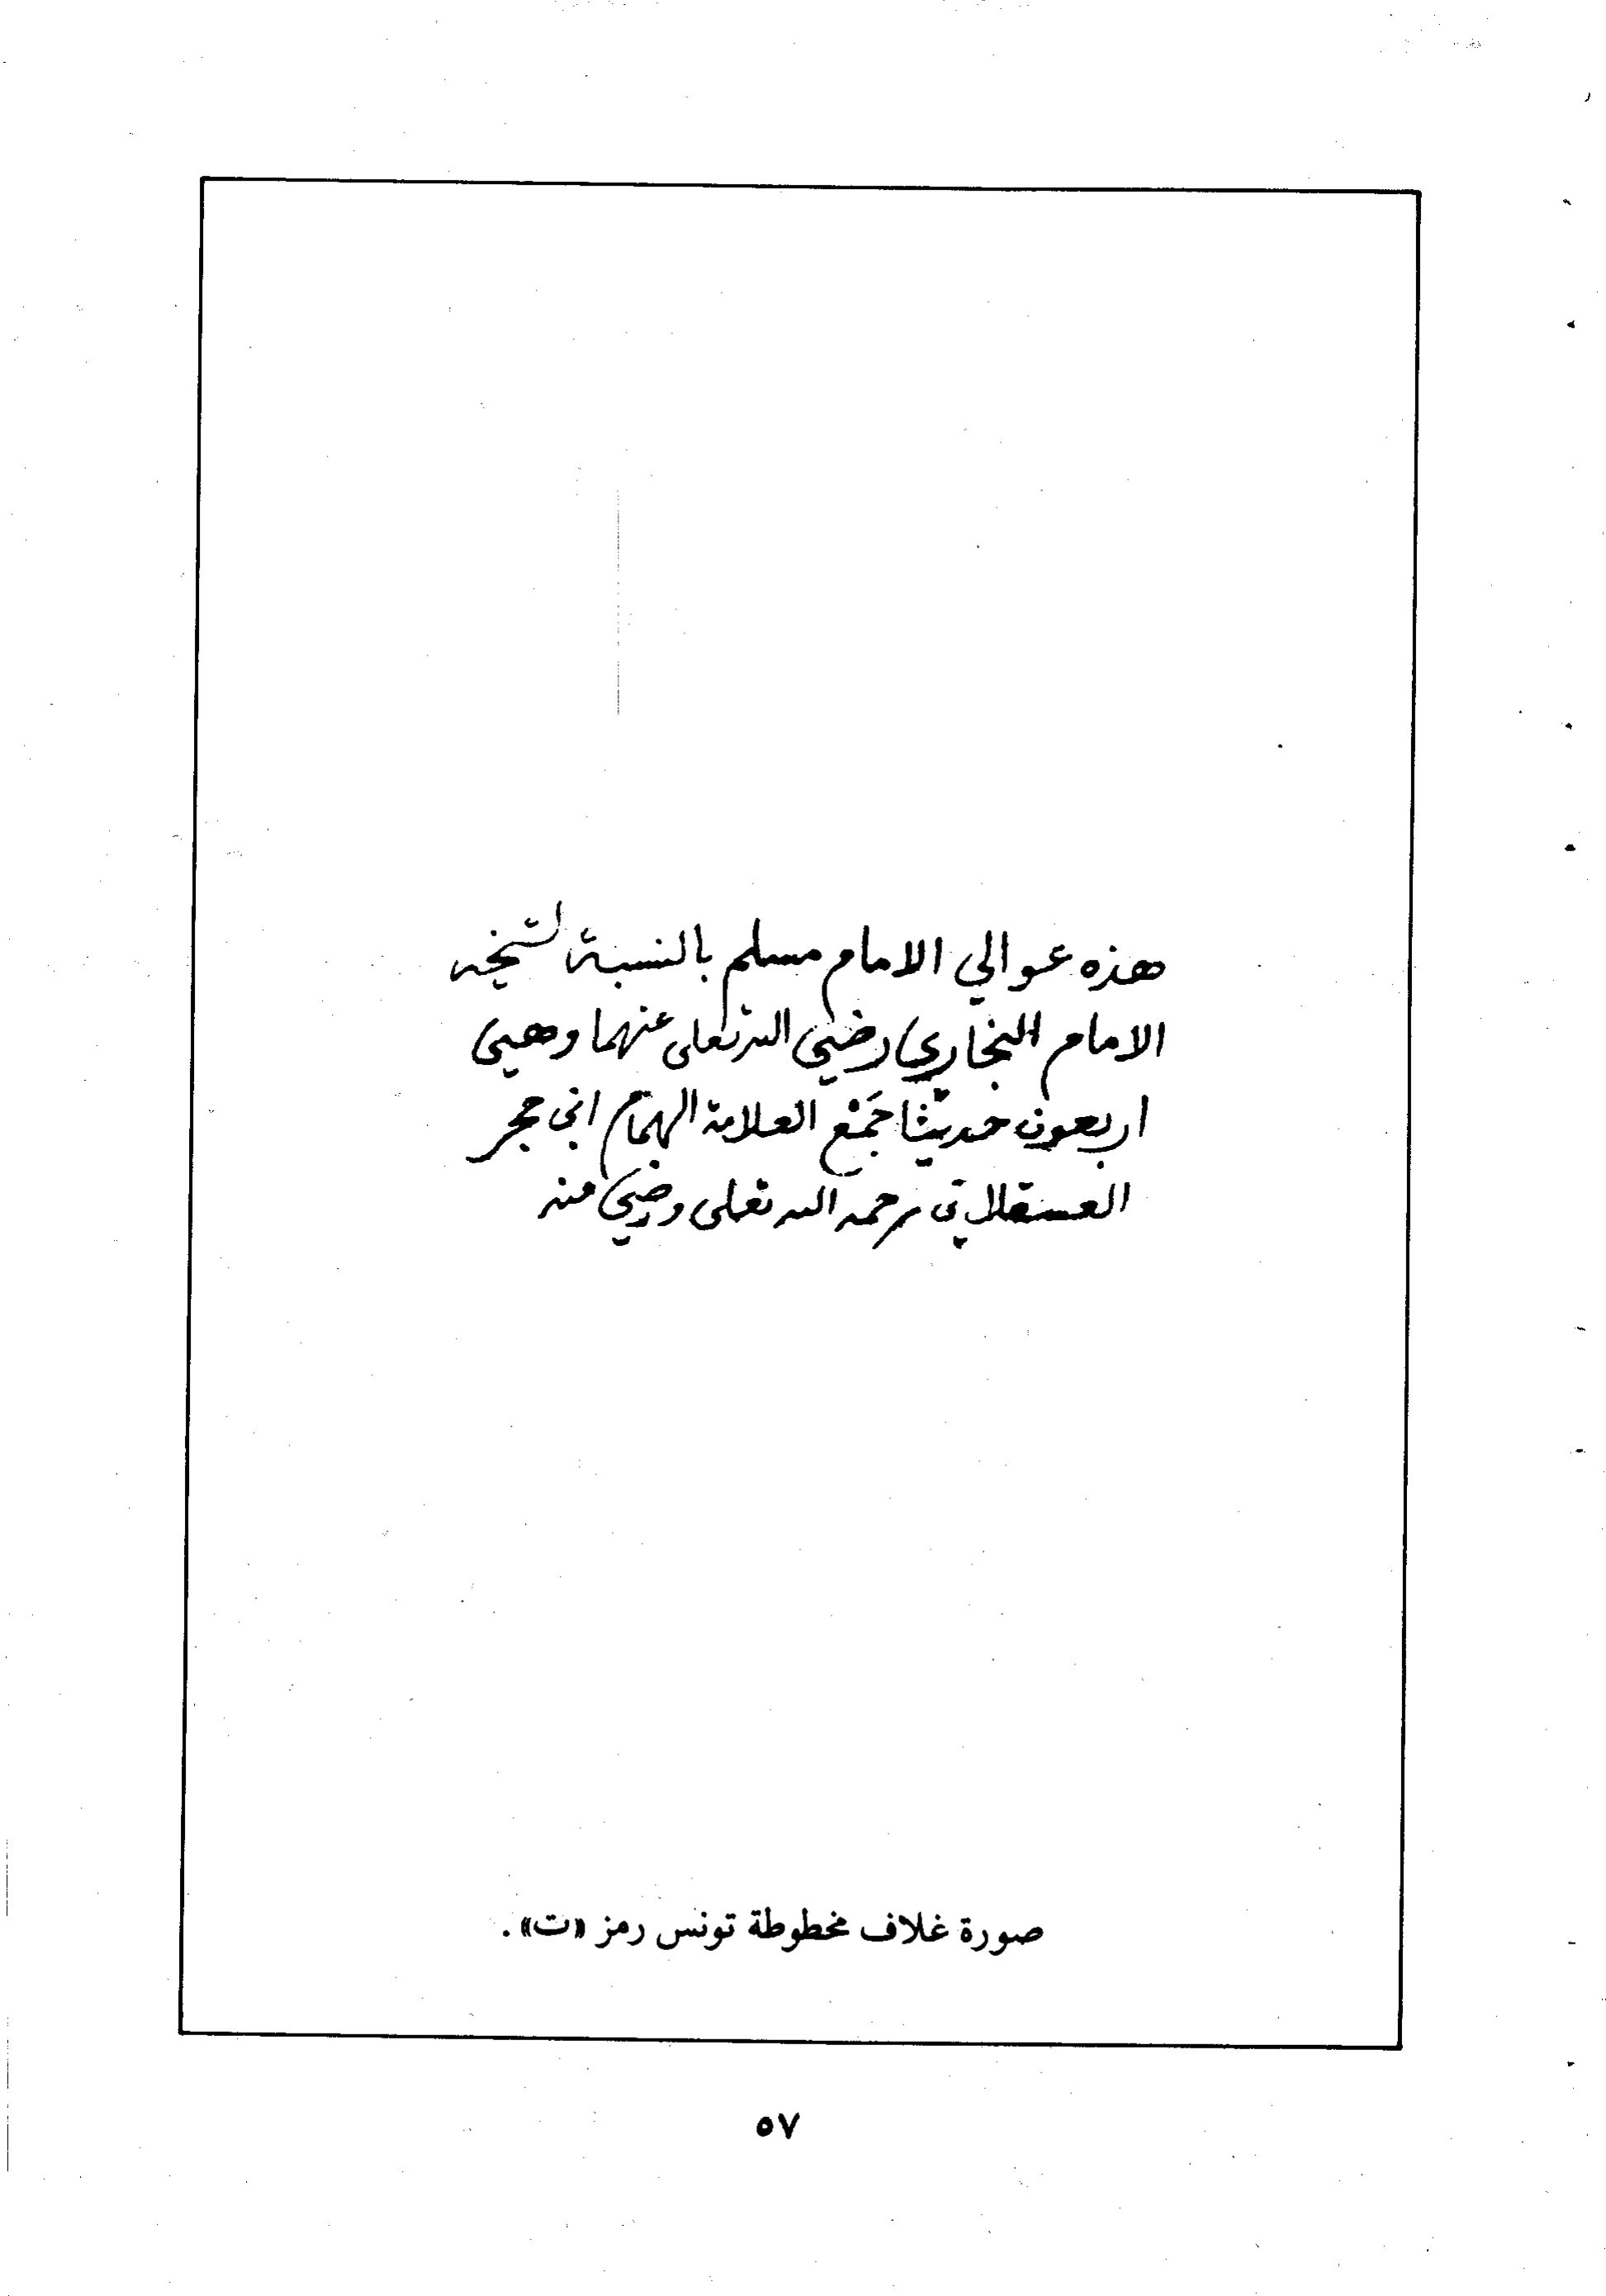 هذه عوالي الامام مسلم بالنسبة لشيخه
الامام البخاري رضي الله تعلى عنهما وهي
اربعون حديثا جَمْع العلامة الهمام ابن حجر
العسقلاني رحمه الله تعلى ورضي عنه
صورة غلاف مخطوطة تونس رمز «ت».
٥٧